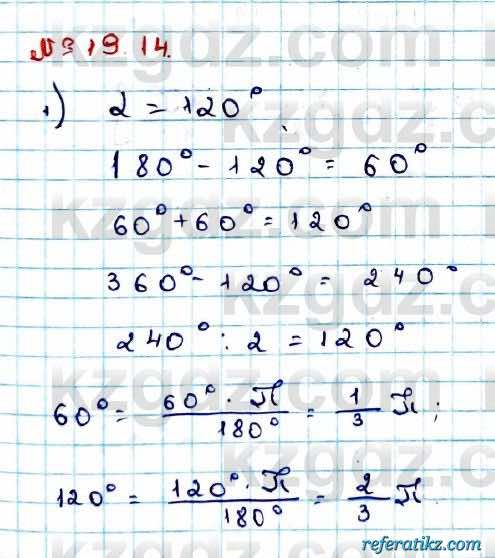 № 19.14.
1) α = 120°
180° - 120° = 60°
60° + 60° = 120°
360° - 120° = 240°
240° : 2 = 120°
60° = 60° · π / 180° = 1/3 π ;
120° = 120° · π / 180° = 2/3 π
kzgdz.com
referatikz.com